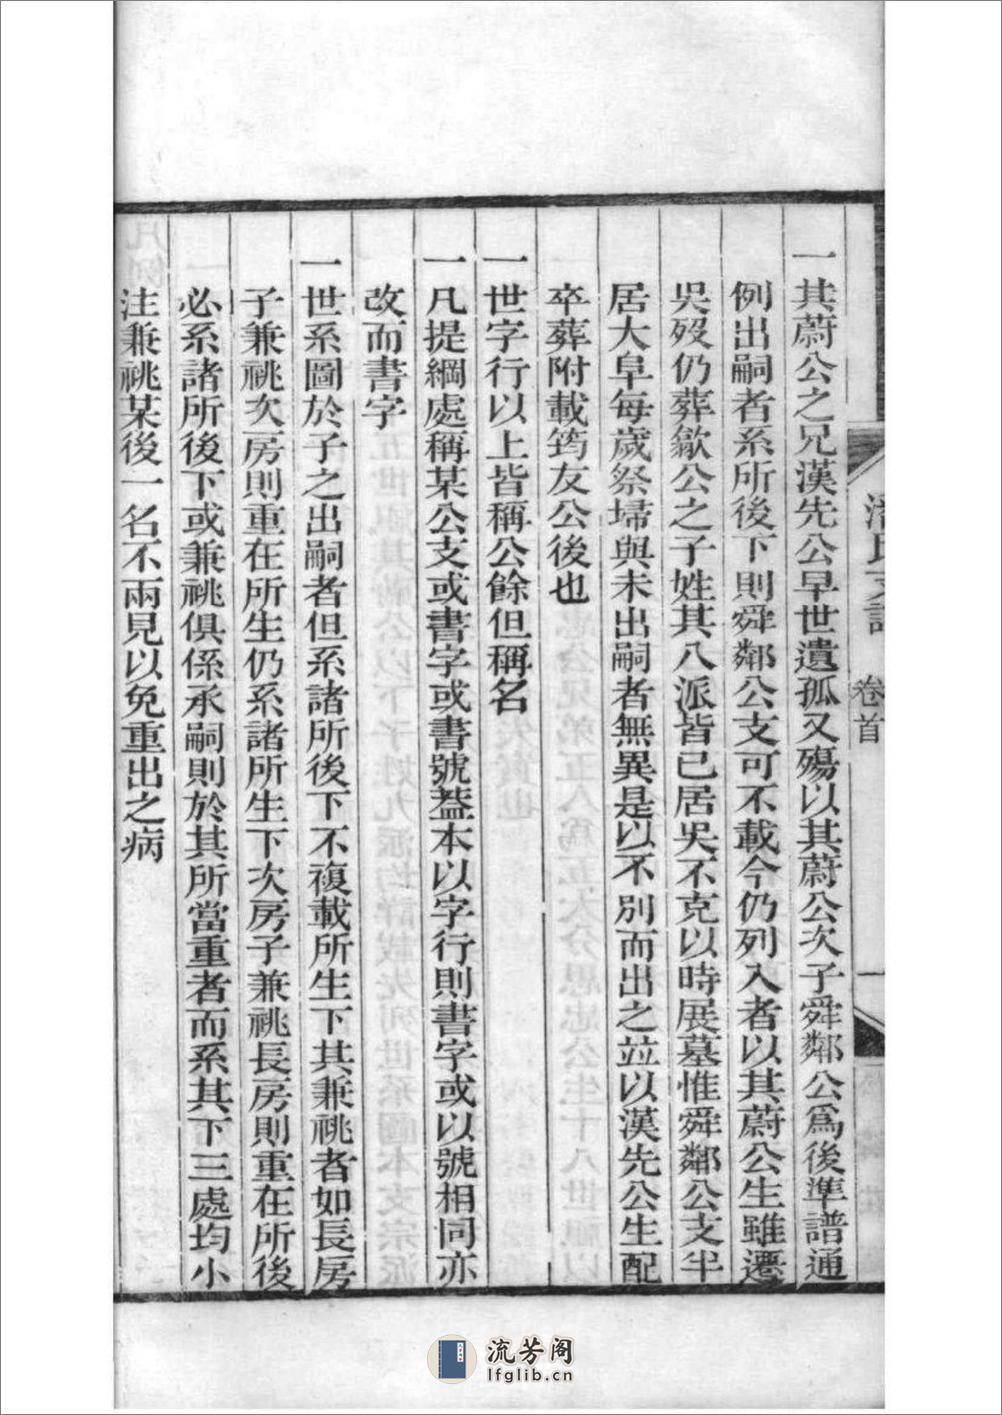 一其蔚公之兄漢先公早世遺孤又殤以其蔚公次子舜鄰公爲後準譜通
例出嗣者系所後下則舜鄰公支可不載今仍列入者以其蔚公生雖遷
吳歿仍葬歙公之子姓其八派皆已居吳不克以時展墓惟舜鄰公支半
居大阜每歲祭埽與未出嗣者無異是以不別而出之並以漢先公生配
卒葬附載筠友公後也
一世字行以上皆稱公餘但稱名
一凡提綱處稱某公支或書字或書號葢本以字行則書字或以號相同亦
改而書字
一世系圖於子之出嗣者但系諸所後下不複載所生下其兼祧者如長房
子兼祧次房則重在所生仍系諸所生下次房子兼祧長房則重在所後
必系諸所後下或兼祧俱係承嗣則於其所當重者而系其下三處均小
注兼祧某後一名不兩見以免重出之病
氏支譜
卷首
一
流芳阁
lfglib.cn